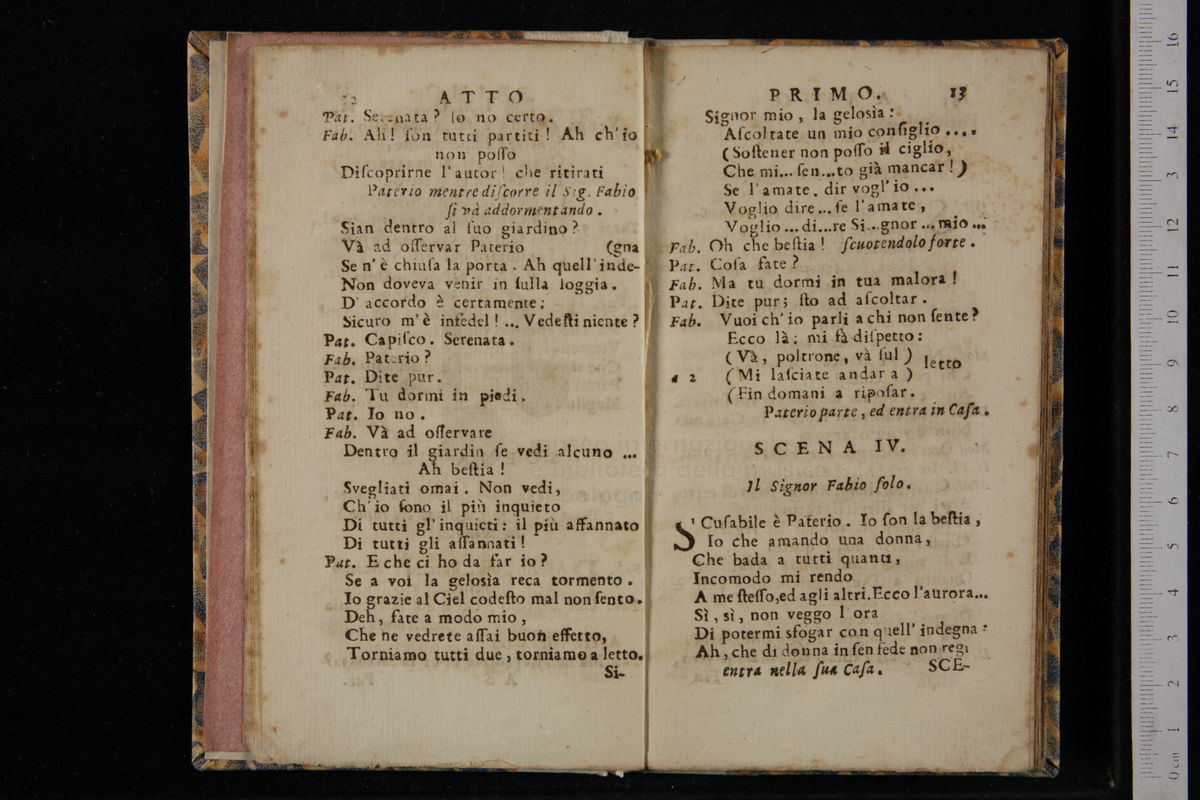 12 ATTO
Pat. Serenata? Io no certo.
Fab. Ah! ſon tutti partiti! Ah ch'io
non poſſo
Diſcoprirne l'autor! che ritirati
Paterio mentre diſcorre il Sig. Fabio
ſi và addormentando.
Sian dentro al ſuo giardino?
Và ad oſſervar Paterio (gna
Se n'è chiuſa la porta. Ah quell'inde-
Non doveva venir in ſulla loggia.
D'accordo è certamente:
Sicuro m'è infedel! ... Vedeſti niente?
Pat. Capiſco. Serenata.
Fab. Paterio?
Pat. Dite pur.
Fab. Tu dormi in piedi.
Pat. Io no.
Fab. Và ad oſſervare
Dentro il giardin ſe vedi alcuno ...
Ah beſtia!
Svegliati omai. Non vedi,
Ch'io ſono il più inquieto
Di tutti gl'inquieti: il più affannato
Di tutti gli affannati!
Pat. E che ci ho da far io?
Se a voi la gelosìa reca tormento.
Io grazie al Ciel codeſto mal non ſento.
Deh, fate a modo mio,
Che ne vedrete aſſai buon effetto,
Torniamo tutti due, torniamo a letto.
Si-
PRIMO. 13
Signor mio, la gelosìa:
Aſcoltate un mio conſiglio ....
(Soſtener non poſſo il ciglio,
Che mi... ſen...to già mancar!)
Se l'amate, dir vogl'io ...
Voglio dire ... ſe l'amate,
Voglio ... di...re Si...gnor ... mio ...
Fab. Oh che beſtia! ſcuotendolo forte.
Pat. Coſa fate?
Fab. Ma tu dormi in tua malora!
Pat. Dite pur; ſto ad aſcoltar.
Fab. Vuoi ch'io parli a chi non ſente?
Ecco là: mi fà diſpetto:
(Và, poltrone, và ſul) letto
a 2 (Mi laſciate andar a)
(Fin domani a ripoſar.
Paterio parte, ed entra in Caſa.
SCENA IV.
Il Signor Fabio ſolo.
S'Cuſabile è Paterio. Io ſon la beſtia,
Io che amando una donna,
Che bada a tutti quanti,
Incomodo mi rendo
A me ſteſſo, ed agli altri. Ecco l'aurora...
Sì, sì, non veggo l ora
Di potermi sfogar con quell'indegna:
Ah, che di donna in ſen fede non regi
entra nella ſua Caſa. SCE-
0 cm 1 2 3 4 5 6 7 8 9 10 11 12 13 14 15 16